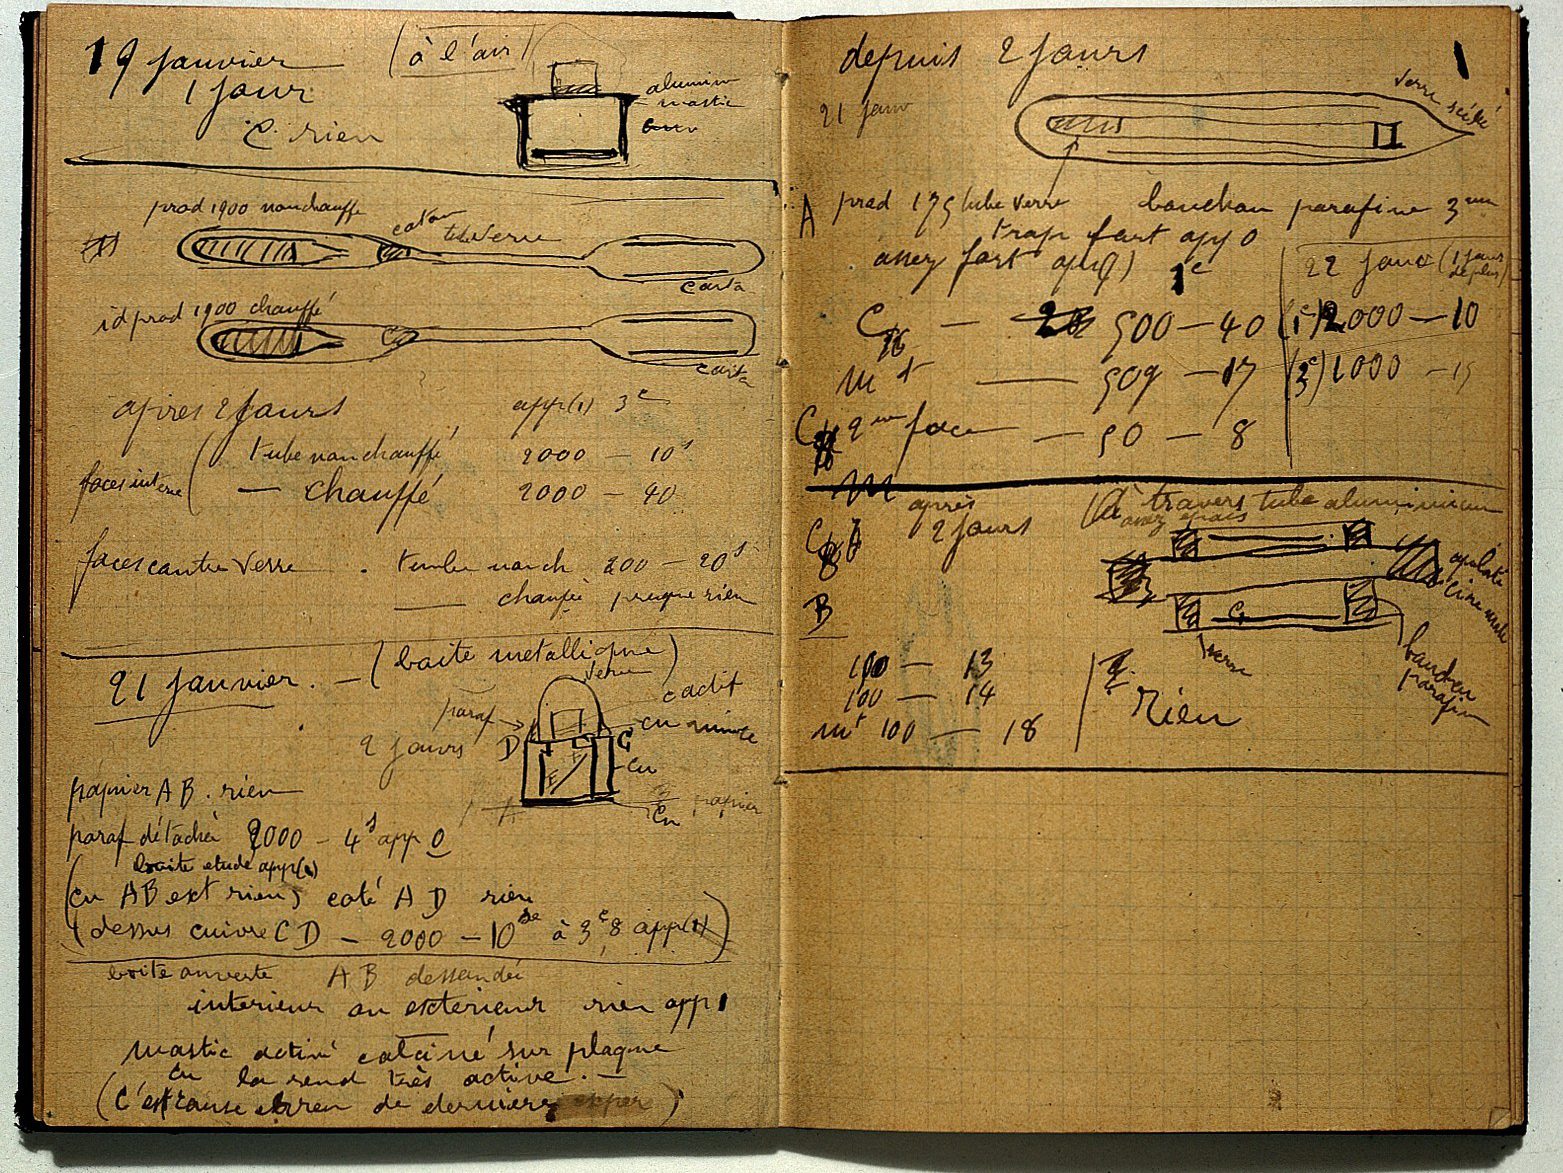 19 janvier
(à l'air)
1 jour
C. rien
aluminium
mastic
prod 1900 non chauffé
coton
tube Verre
carta
id prod 1900 chauffé
carta
après 2 jours
app(1) 3c
faces interne
tube non chauffé 2000 — 10s
— chauffé 2000 — 40
faces contre Verre . tube non ch 200 — 20s
— chaufée presque rien
21 janvier. — (boite metallique)
verre
paraf
c actif
cu mince
2 jours
D
C
cu
E
A
B papier
Cu
papier AB. rien
paraf détaché 2000 — 4s app 0
boite etude app(1)
(cu AB ext rien) coté A D rien
(dessus cuivre CD — 2000 — 10 à 3c,8 app(1))
boite ouverte AB dessoudée
interieur ou exterieur rien app 1
mastic activé calciné sur plaque
cu la rend très active. —
(C'est de derniere exper)
depuis 2 jours
1
21 janv
verre scéllé
A prod 175 tube verre bouchon parafine 3mm
trop fort app 0
assez fort app(1) 1c
22 janv (1 jour de plus)
C — 500 — 40 (1c) 2000 — 10
mt — 509 — 17 (3c) 1000 — 15
C 2me face — 50 — 8
après
2 jours
(à travers tube aluminium
assez épais
B
C
verre
bouchon
parafin
100 — 13
100 — 14
mt 100 — 18
rien